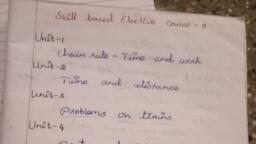 Skill based Elective Course - II
Unit-1
Chain rule - Time and work
Unit-2
Time and distance
Unit-3
Problems on trains
Unit-4